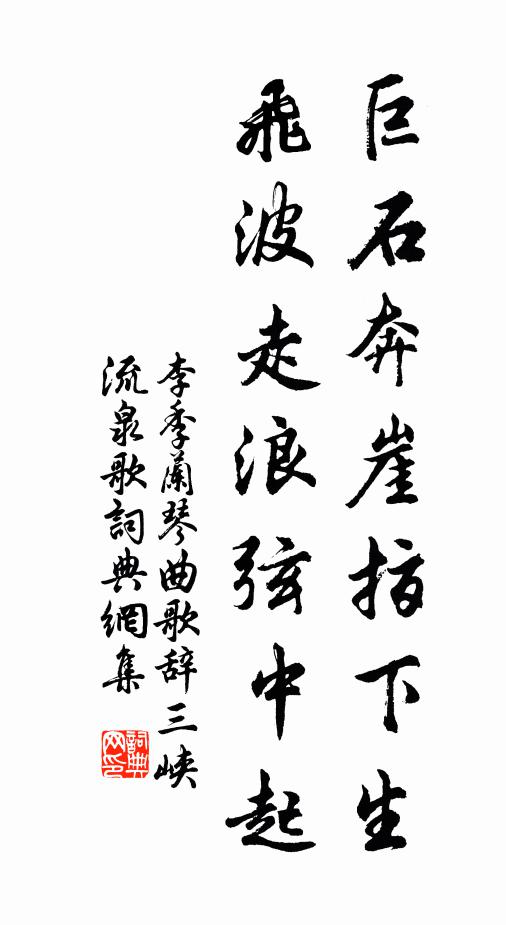 巨石奔崖指下生
飛波走浪弦中起
李季蘭琴曲歌辞三峡
流泉歌詞典網集
詞典网印